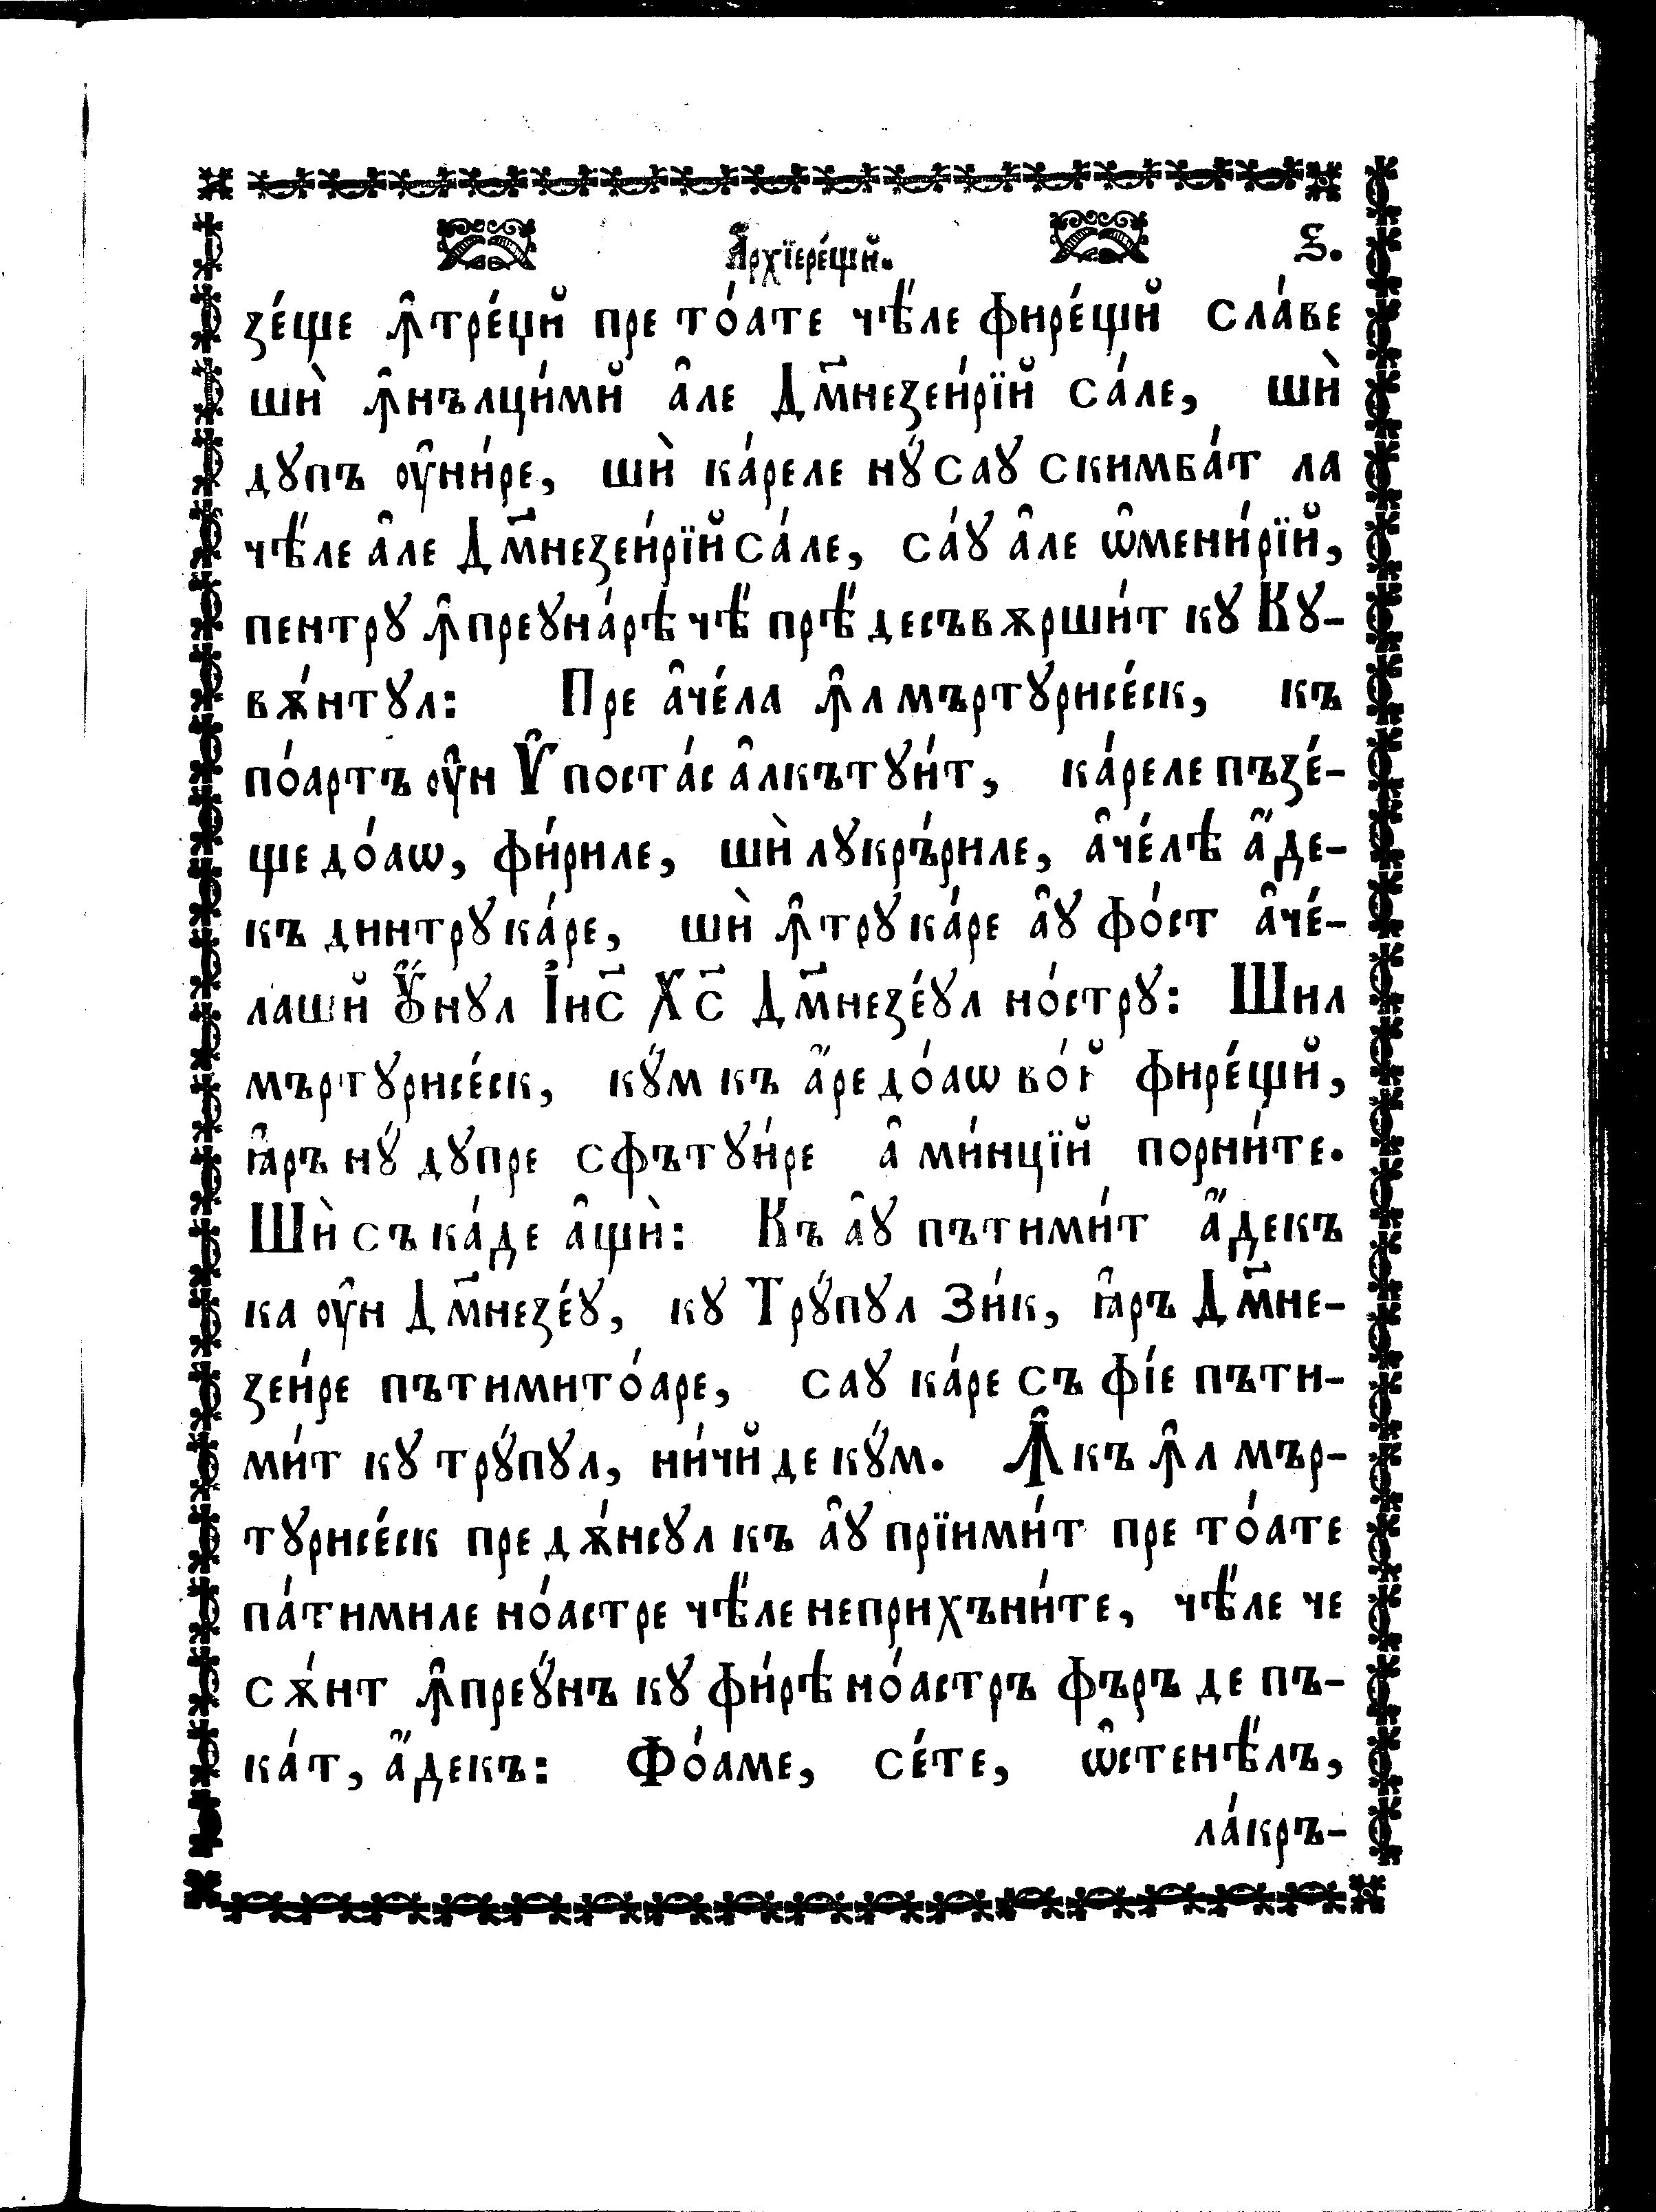 А҆рхїере́щй. Ѕ.
зе́ще ꙟ҆тре́џй пре то́ате чѣ́ле фире́щй сла́ве
шѝ ꙟ҆нълци́мй а҆ле Дм҃незеи́рїй са́ле, шѝ
дꙋпъ ᲂу҆ни́ре, шѝ ка́реле нꙋ́ саꙋ скимба́т ла
чѣ́ле а҆ле Дм҃незеи́рїй са́ле, са́ꙋ а҆ле ѡ҆мени́рїй,
пентрꙋ ꙟ҆преꙋна́рѣ чѣ́ прѣ́ десъвѫрши́т кꙋ Кꙋ-
вѫ́нтꙋл: Пре а҆че́ла ꙟ҆л мъртꙋрисе́ск, къ
по́артъ ᲂу҆н Ѵ҆поста́с а҆лкътꙋи́т, ка́реле пъзе́-
ще до́аѡ, фи́риле, шѝ лꙋкръ́риле, а҆че́лѣ а҆́де-
къ динтрꙋ ка́ре, шѝ ꙟ҆трꙋ ка́ре а҆ꙋ фо́ст а҆че́-
лашй Ꙋ҆́нꙋл І҆ис҃ Хс҃ Дм҃незе́ꙋл но́стрꙋ: Шил
мъртꙋрисе́ск, кꙋ́м къ а҆́ре до́аѡ во́й фире́щй,
ꙗ҆ръ нꙋ́ дꙋпре сфътꙋи́ре а҆ ми́нцїй порни́те.
Шѝ съ ка́де а҆щѝ: Къ а҆ꙋ пътими́т а҆́декъ
ка ᲂу҆н Дм҃незе́ꙋ, кꙋ Трꙋ́пꙋл зи́к, ꙗ҆ръ Дм҃не-
зеи́ре пътимито́аре, саꙋ ка́ре съ фі́е пъти-
ми́т кꙋ трꙋ́пꙋл, ни́чй де кꙋ́м. Ꙟ҆къ ꙟ҆л мър-
тꙋрисе́ск пре дѫ́нсꙋл къ а҆ꙋ прїими́т пре то́ате
па́тимиле но́астре чѣ́ле неприхъни́те, чѣ́ле че
сѫ́нт ꙟ҆преꙋ́нъ кꙋ фи́рѣ но́астръ фъръ де пъ-
ка́т, а҆́декъ: Фо́аме, се́те, ѡ҆стенѣ́лъ,
ла́кръ-